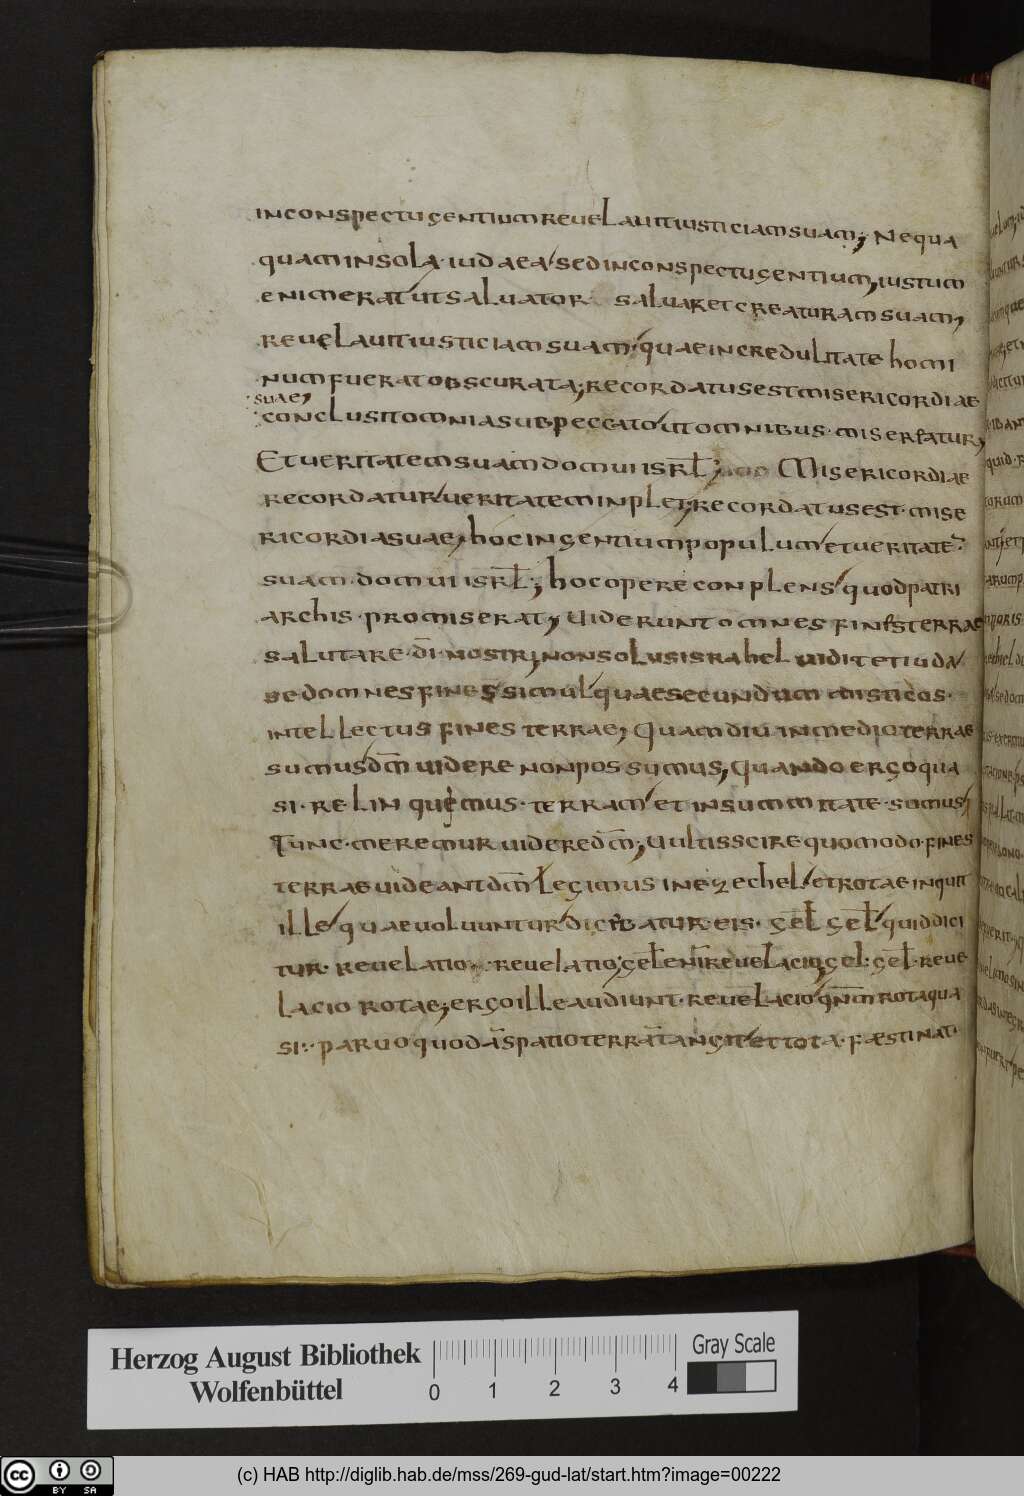 inconspectu gentium reuelauit iusticiam suam; Nequa
quam insola· iudaea· sed inconspectu gentium, iustum
enim erat ut saluator saluaret creaturam suam,
reuelauit iusticiam suam· quae incredulitate homi
num fuerat obscurata; recordatus est misericordiae
suae,
conclusit omnia sub peccato ut omnibus· miserfatur,
Et ueritatem suam domui isrł; Misericordiae
recordatur ueritatem inplet; recordatus est· mise
ricordiae suae, hoc in gentium populum et ueritatē
suam· domui isrł; hoc opere conplens quod patri
archis· promiserat, Uiderunt omnes fines terrae
salutare· dī· nostri, non solus israhel uidit et iuda
sed omnes fines simul quae secundum misticos·
intellectus fines terrae, Quamdiu in medio terrae
sumus dm̄ uidere non possumus, Quando ergo qua
si· relinquemus· terram et in summitate· sumus
Tunc· meremur uidere dm̄, Uultis scire quomodo· fines
terrae uideant dm̄ Legimus in ezechel et rotae inquit
ille quae uoluuntur dicebatur eis· gel gel quid dici
tur· reuelatio· reuelatio; gel enim reuelacio, gel· gel· reue
lacio rotae, ergo ille audiunt· reuelacio qnm rota qua
si· paruo quodā spatio terrā tangit et tota· fæstinat·
Herzog August Bibliothek
Wolfenbüttel
0 1 2 3 4
Gray Scale
cc BY SA
(c) HAB http://diglib.hab.de/mss/269-gud-lat/start.htm?image=00222